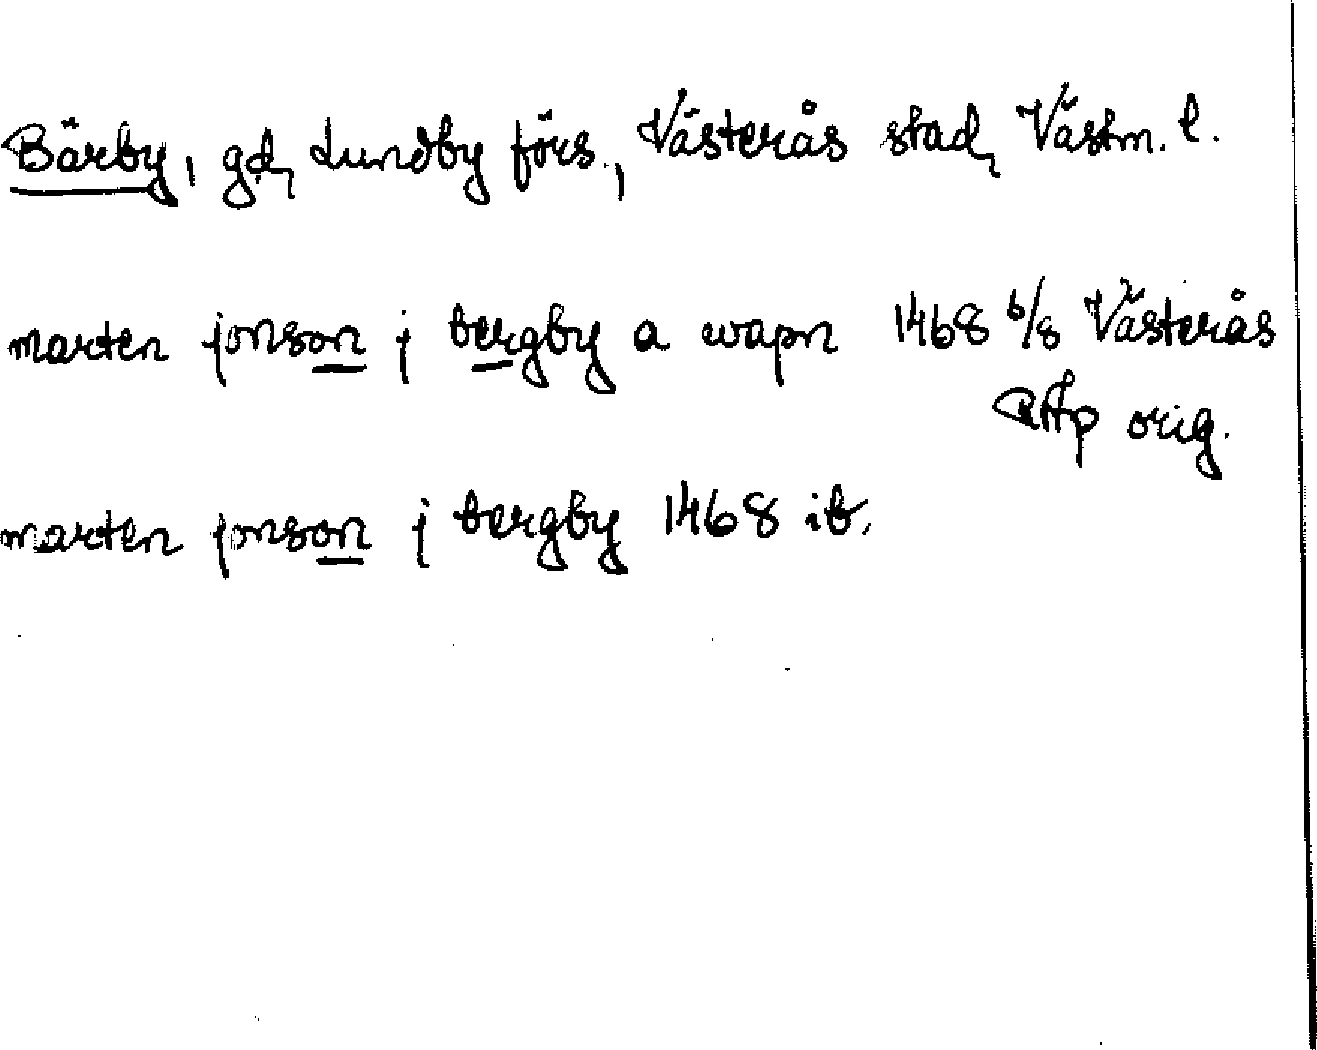 Bärby, gd, Lundby förs., Västerås stad, Västm. l.
marten jonson j bergby a wapn 1468 6/8 Västerås
RAp orig.
marten jonson j bergby 1468 ib.